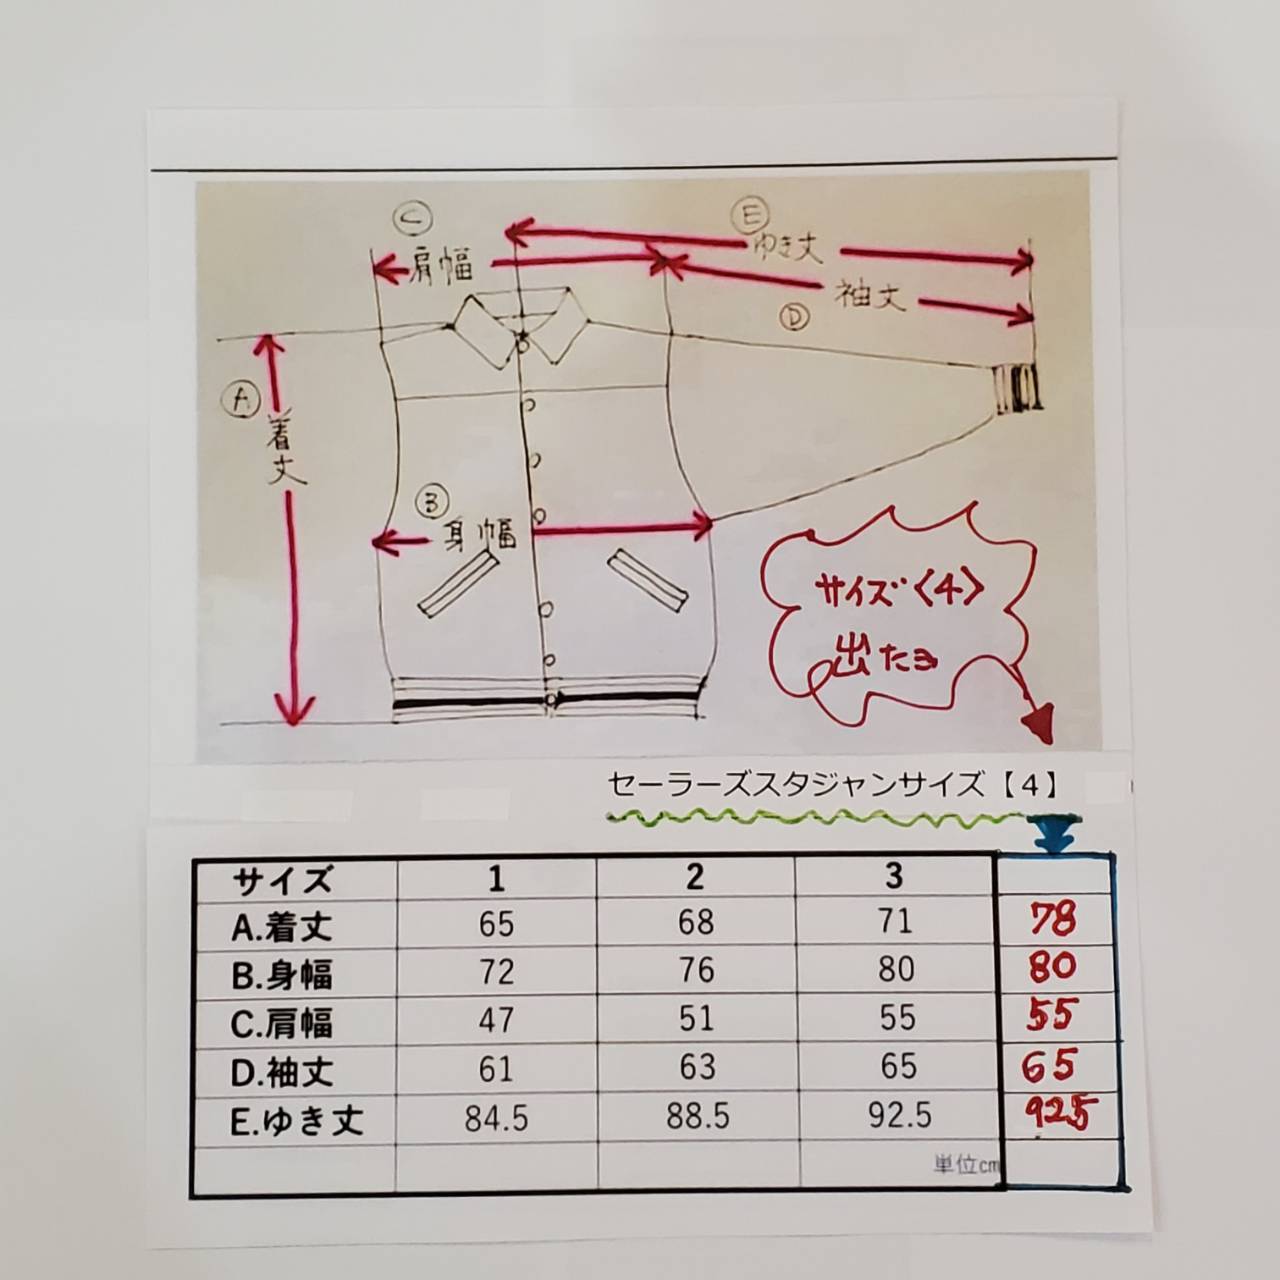 Ⓒ
Ⓔ
肩幅
ゆき丈
袖丈
Ⓓ
Ⓐ
着丈
Ⓑ
身幅
サイズ〈4〉
出たヨ
セーラーズスタジャンサイズ【4】
サイズ 1 2 3
A.着丈 65 68 71 78
B.身幅 72 76 80 80
C.肩幅 47 51 55 55
D.袖丈 61 63 65 65
E.ゆき丈 84.5 88.5 92.5 92.5
単位cm